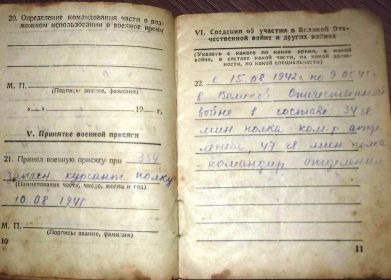 20. Определение командования части о воз-
можном использовании в военное время
М. П.
(Подпись звание, фамилия)
19 г,
V. Принятие военной присяги
21. Принял военную присягу при 334
запасн. курсант. полку
(Наименование части, число, месяц и год)
10.08 194
М. П.
(Подпись звание, фамилия)
10
VI. Сведения об участии в Великой Оте-
чественной войне и других войнах
(Указать с какого по какое время, в какой
войне, в составе какой части, на какой долж-
ности, по какой специальности)
22. с 15.08 1942г по 9.05.45г
в Великой Отечественной
войне в составе 34 гв.
мин полка ком-р отде
ления, 47 гв. мин. полка
командир отделения
11